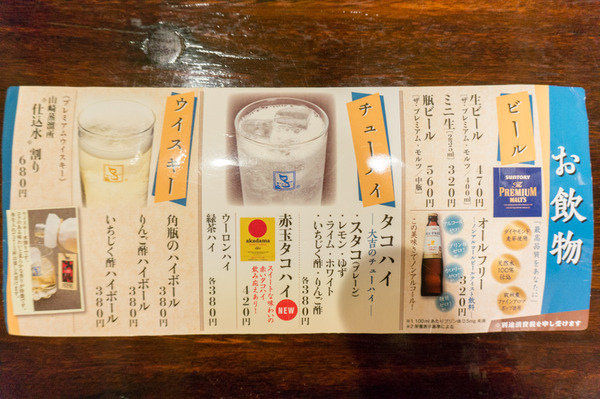 お飲物
ビール
SUNTORY
The
PREMIUM
MALT'S
「最高品質をあなたに」
ダイヤモンド
麦芽使用
天然水
100%
仕込
欧州産
ファインアロマ
ホップ使用
※別途消費税を申し受けます
生ビール 470円
(ザ・プレミアム・モルツ 400ml)
ミニ生(235ml) 320円
瓶ビール 560円
(ザ・プレミアム・モルツ 中瓶)
オールフリー
―ノンアルコールビールテイスト飲料―
320円
この美味しさでノンアルコール!
※1 100ml あたりプリン体 0.5mg 未満
※2 栄養表示基準による
チューハイ
タコハイ
―大吉のチューハイ―
・スタコ(プレーン)
・レモン・ゆず
・ライム・ホワイト
・いちじく酢・りんご酢
各380円
赤玉タコハイ
NEW
420円
akadama
スイートな味わいの
赤いタコハイ
飲み応えあり!
ウーロンハイ
緑茶ハイ
各380円
ウイスキー
角瓶のハイボール 380円
りんご酢ハイボール 380円
いちじく酢ハイボール 380円
〈プレミアムウイスキー〉
山崎蒸溜所
仕込水®割り
680円